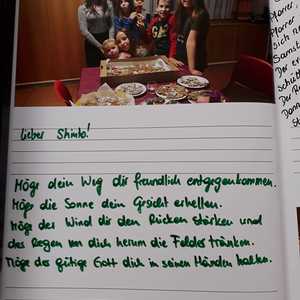 lieber Shinto!
Möge dein Weg dir freundlich entgegenkommen.
Möge die Sonne dein Gesicht erhellen.
Möge der Wind dir den Rücken stärken und
der Regen um dich herum die Felder tränken.
Möge der gütige Gott dich in seinen Händen halten.
Pfarrer,
Pfarrer
sich
Der